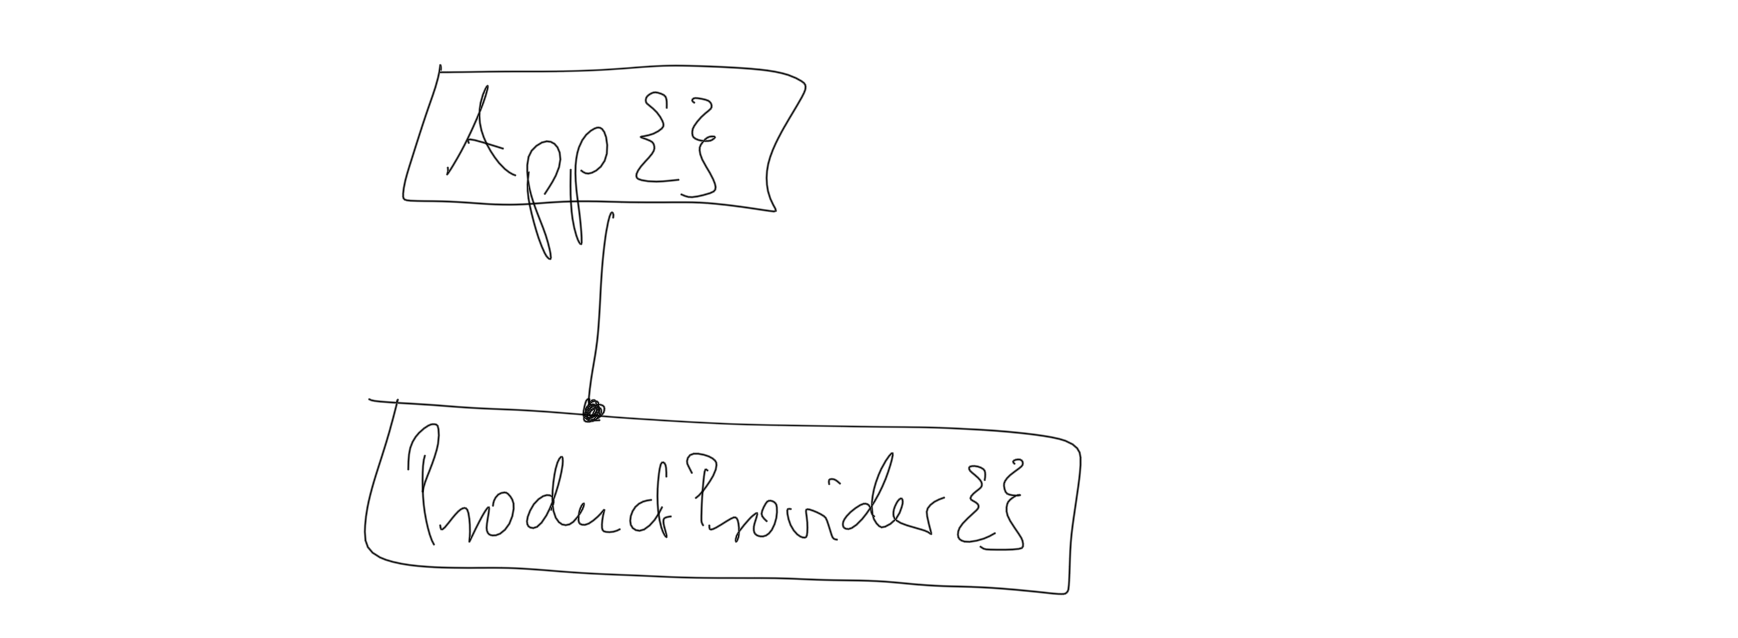 App{}
ProductProvider{}